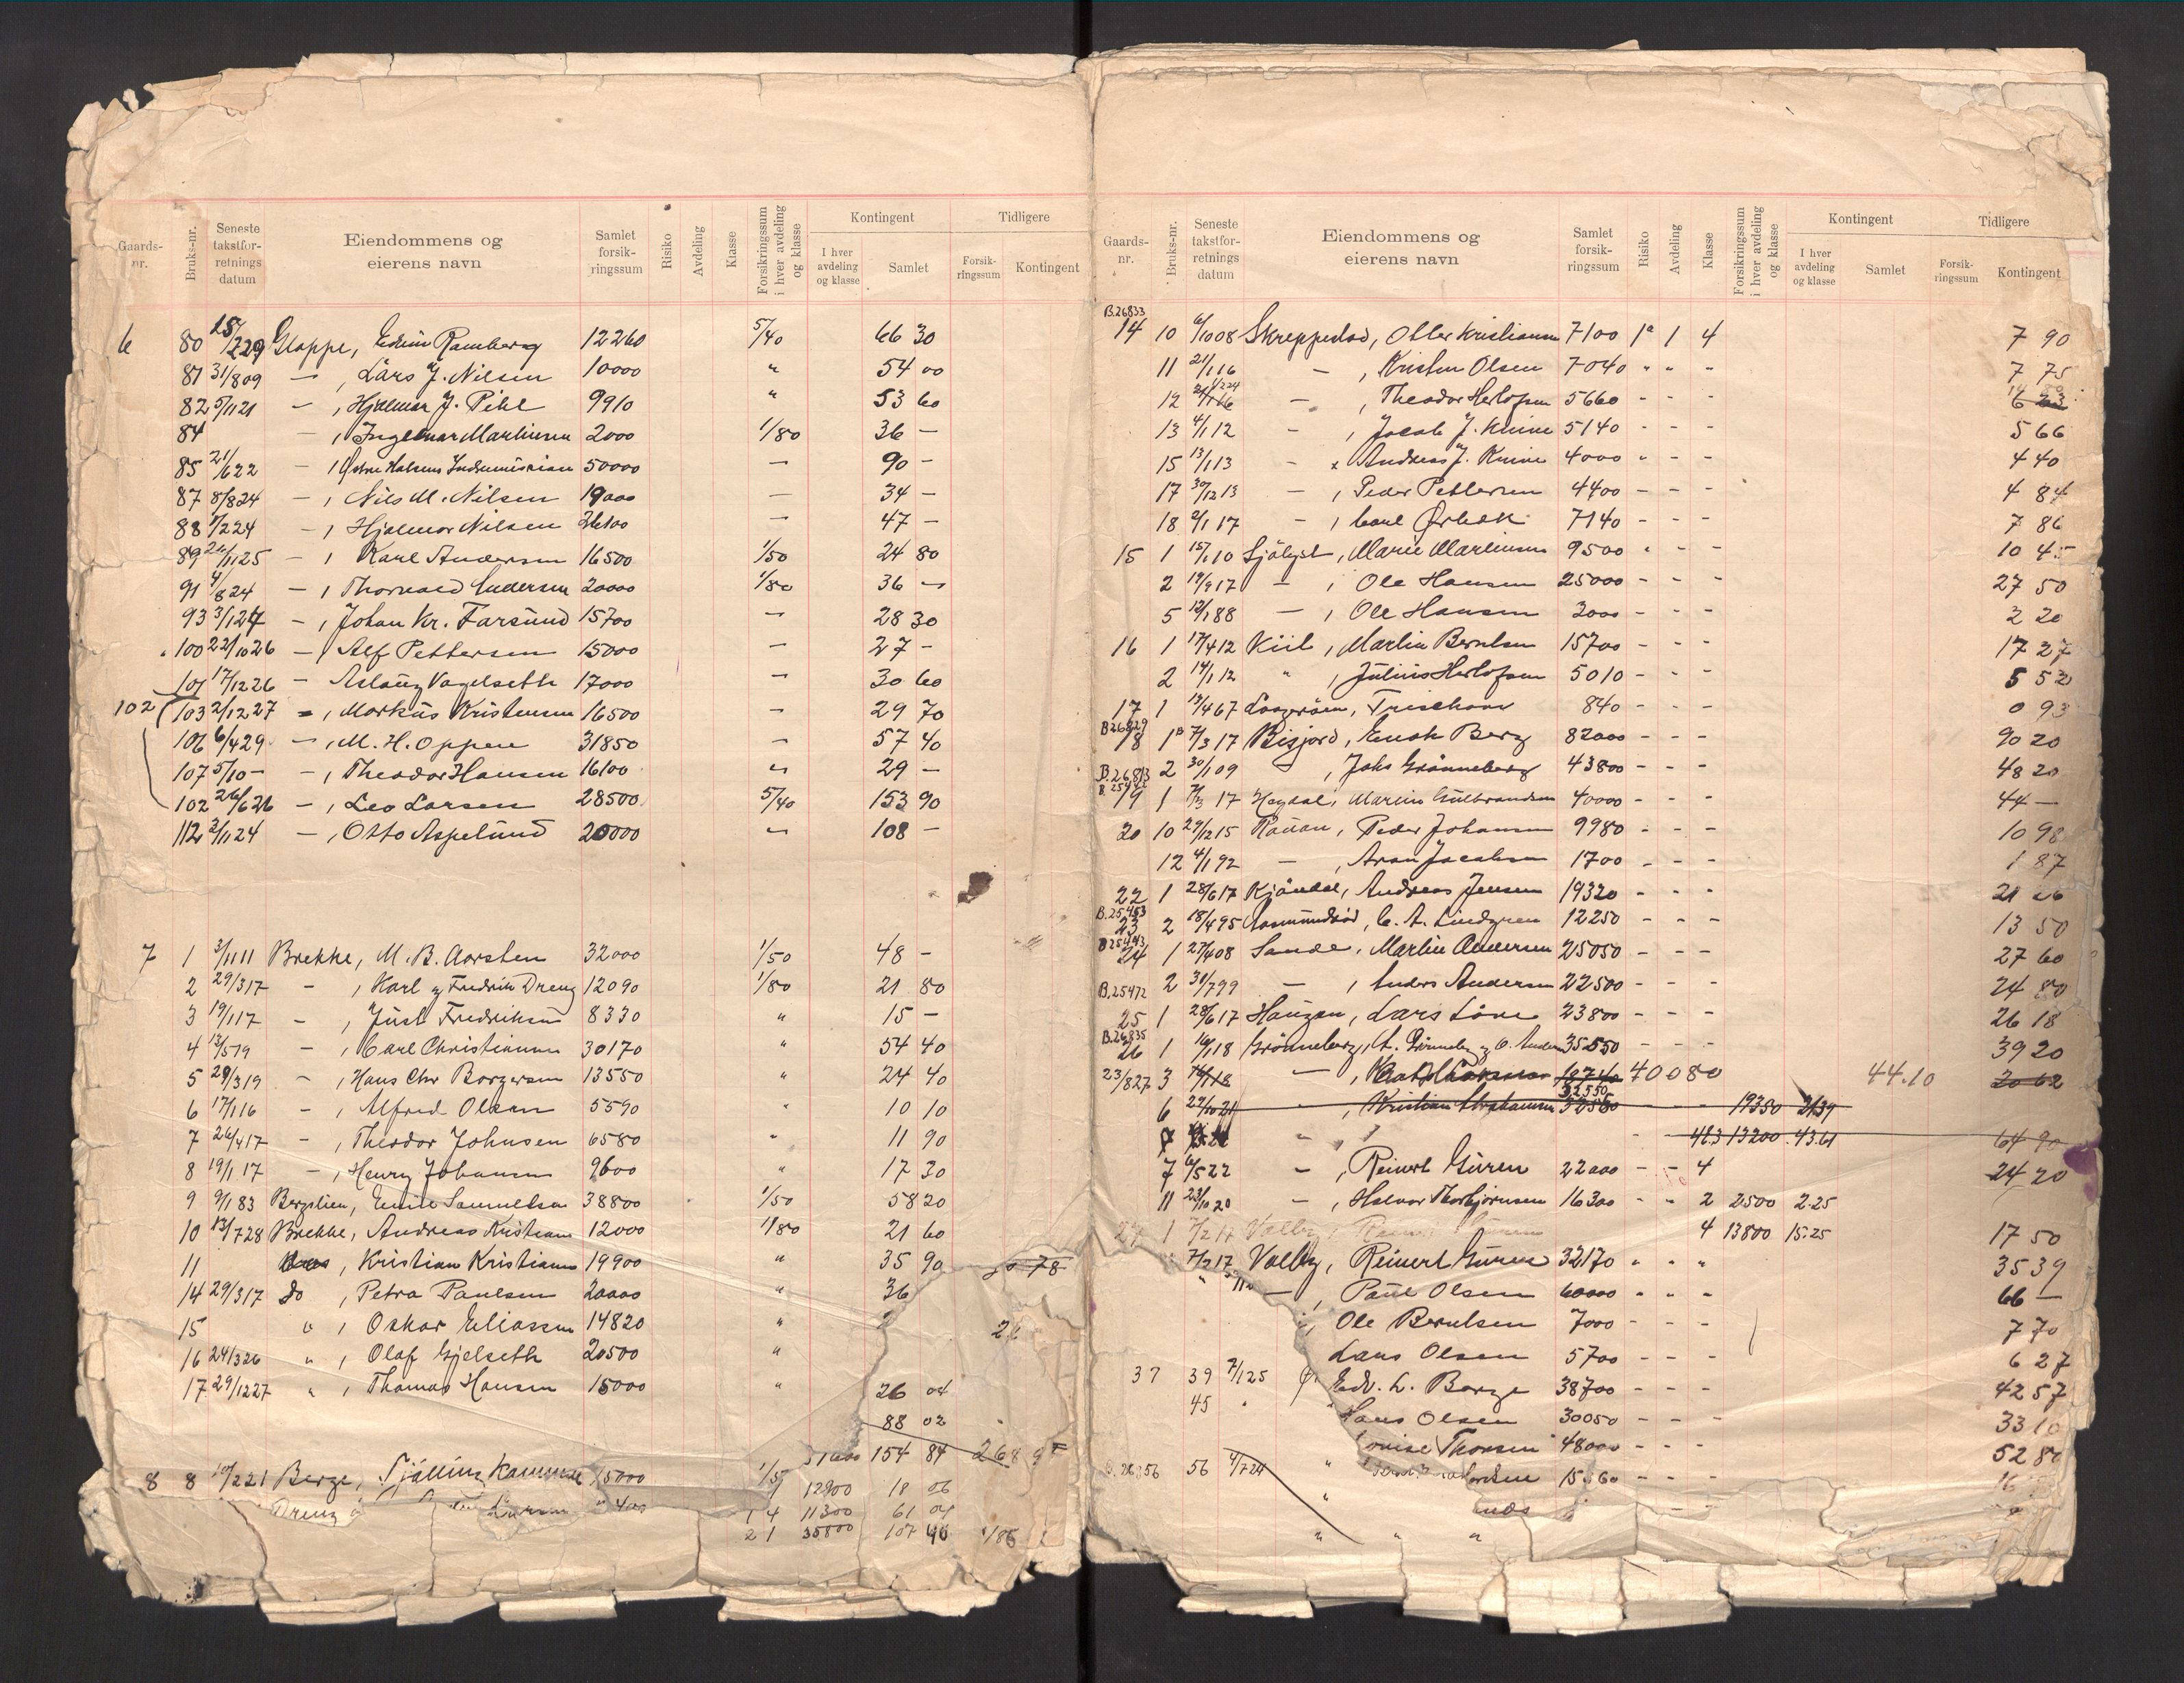 Gaards-nr. Bruks-nr. Seneste takstfor-retnings datum Eiendommens og eierens navn Samlet forsik-ringssum Risiko Avdeling Klasse Forsikringssum i hver avdeling og klasse Kontingent I hver avdeling og klasse Samlet Tidligere Forsik-ringssum Kontingent
6 80 Gloppe, Edvin Ramberg 12260 5/40 66 30
81 31/8 09 — , Lars J. Nilsen 10000 " 54 00
82 5/11 21 — , Hjalmar J. Pihl 9910 " 53 60
84 — , Ingemar Martinsen 2000 1/80 36 —
85 21/6 22 — , 50000 — 90 —
87 8/8 24 — , Nils M. Nilsen 19000 — 34 —
88 1/2 24 — , Hjalmar Nilsen 26100 — 47 —
89 21/11 25 — , Karl Andersen 16500 1/50 24 80
91 4/8 24 — , Thorvald Andersen 20000 1/80 36 —
93 3/1 24 — , Johan Kr. Farsund 15700 — 28 30
100 22/10 26 — , Alf Pettersen 15000 — 27 —
101 17/12 26 — Aslaug Vagelseth 17000 — 30 60
102 103 2/12 27 — , Markus Kristensen 16500 — 29 70
106 6/4 29 — , M. H. Oppen 31850 — 57 40
107 5/10 — — , Theodor Hansen 16100 " 29 —
102 26/6 26 — , Leo Larsen 28500 5/40 153 90
112 3/11 24 — , Otto Aspelund 20000 " 108 —
7 1 3/11 11 Brekke, M. B. Aorsten 32000 1/50 48 —
2 29/3 17 — , Karl og Fredrik Dreng 12090 1/80 21 80
3 19/1 17 — , Just Fredriksen 8330 " 15 —
4 13/5 19 — , Carl Christiansen 30170 " 54 40
5 29/3 19 — , Hans Chr Borgersen 13550 " 24 40
6 17/1 16 — , Alfred Olsen 5590 " 10 10
7 26/4 17 — , Theodor Johnsen 6580 " 11 90
8 19/1 17 — , Henry Johansen 9600 " 17 30
9 9/1 83 Bergslien, Emilie Samuelsen 38800 1/50 58 20
10 13/7 28 Brekke, Andreas Kristians 12000 1/80 21 60
11 , Kristian Kristians 19900 " 35 90 78
14 29/3 17 do , Petra Paulsen 20000 " 36
15 " , Oskar Eliassen 14820 "
16 24/3 26 " , Olaf Gjelseth 20500 "
17 29/12 27 " , Thomas Hansen 15000 " 26 04
88 02
154 84 268
8 8 10/2 21 Berge, 15000 1/5 12900 18 06
Dreng Larsen 1 4 11300 61 04
2 1 35800 107 40
Gaards-nr. Bruks-nr. Seneste takstfor-retnings datum Eiendommens og eierens navn Samlet forsik-ringssum Risiko Avdeling Klasse Forsikringssum i hver avdeling og klasse Kontingent I hver avdeling og klasse Samlet Tidligere Forsik-ringssum Kontingent
B.26833
14 10 6/10 08 Skreppestad, Otter Kristiansen 7100 1a 1 4 7 90
11 21/1 16 — , Kristen Olsen 7040 " " - 7 75
12 — , Theodor Herlofsen 5660 - - -
13 4/1 12 - , Jacob J. Knive 5140 - - - 5 66
15 13/1 13 - , Andreas J. Knive 4000 " - - 4 40
17 30/12 13 — , Peder Pettersen 4400 - - - 4 84
18 2/1 17 - , Carl Ørbek 7140 - - - 7 86
15 1 Sjölyst, Marie Martinsen 9500 " - - 10 45
2 19/9 17 — , Ole Hansen 25000 - - - 27 50
5 12/1 88 — , Ole Hansen 3000 - - - 2 20
16 1 17/4 12 Viil, Martin Berntsen 15700 - - - 17 27
2 14/1 12 " , Julius Herlofsen 5010 - - - 5 52
17 1 13/4 67 840 0 93
18 1 7/3 17 Bisjord, Enok Berg 82000 - - - 90 20
B.26813 2 30/1 09 , Johs Grönneberg 43800 - - - 48 20
19 1 7/3 17 Heydal, Martin Gulbrandsen 40000 - - - 44 —
20 10 29/12 15 Rauan, Peder Johansen 9980 - - - 10 98
12 4/1 92 — , Aron Jacobsen 1700 - - - 1 87
22 1 28/6 17 Kjöndal, Andreas Jensen 19320 - - - 21 26
B.25453
23 2 18/4 95 Aasmundröd, C. A. Lindgren 12250 - - - 13 50
24 1 27/4 08 Sande, Martin Andersen 25050 - - - 27 60
B.25472 2 31/7 99 — , Anders Andersen 22500 - - - 24 80
25 1 28/6 17 Haugan, Lars Löve 23800 - - - 26 18
B.26835
26 1 Grönneberg, 35550 - - - 39 20
23/8 27 3 — , 18740 40080 44.10 20 62
32550
6 29/10 21 , Kristian Abrahamsen 19350 21.39
7 " 4&3 13200 43.61 64 90
7 6/5 22 — , Reinert Guren 22000 - - 4 24 20
11 23/10 20 — , Halvor Thorbjörnsen 16300 - " 2 2500 2.25
27 1 7/2 17 Valby, 4 13800 15.25 17 50
7/2 17 Valby, Reinert Guren 32170 " " " 35 39
— , Paul Olsen 60000 " " " 66 —
, Ole Berntsen 7000 - - - 7 70
Lars Olsen 5700 - - - 6 27
37 39 7/1 25 Edv. L. Berge 38700 - - - 42 57
45 " Hans Olsen 30050 - - - 33 10
Louise Thorsen 48000 - - - 52 80
56 4/7 24 "
"
" " "